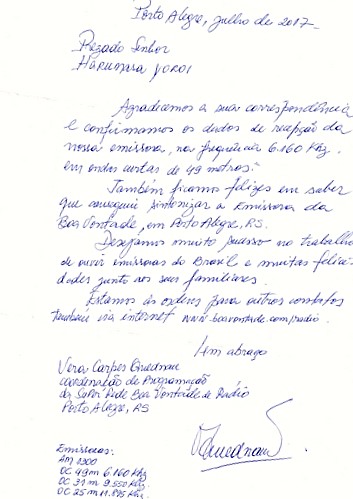 Porto Alegre, julho de 2017-
Prezado Senhor
HARUMASA YOROI
Agradecemos a sua correspondência
e confirmamos os dados de recepção da
nossa emissora, na frequência 6.160 Khz
em ondas curtas de 49 metros.
Também ficamos felizes em saber
que conseguiu sintonizar a Emissora da
Boa Vontade, em Porto Alegre, RS.
Desejamos muito sucesso no trabalho
de ouvir emissoras do Brasil e muitas felici-
dades junto aos seus familiares.
Estamos às ordens para outros contatos
também via internet www.boavontade.com/radio
Um abraço
Vera
coordenação de Programação
da Super Rede Boa Vontade de Rádio
Porto Alegre, RS
Emissoras:
AM 1300
OC 49m 6.160 Khz
OC 31m 9.550 Khz
OC 25m 11.895 Khz